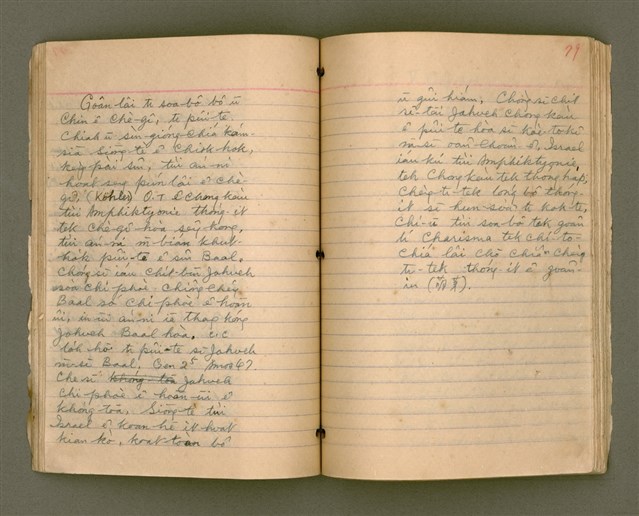 Goân-lâi tī soa-bô bô ū
Chin ê Chè-gî, tī pùi-tē
Chiah ū sìn-gióng Chiá kám-
siā Siōng-tè ê Chiok-hok,
kèng-pài sîn, tùi án-ni
hoat-seng pún-lâi ê Chè
gî, (Köhler) O.T. ê Chong-kàu
tùi Amphiktyonie thóng-it
tek Chè-gî hòa sèng-kong,
tùi án-ni m̄-bián khut-
hok pùi-tē ê sîn Baal,
Chóng-sī iáu chit-bīn Jahveh
só͘ chi-phoè. Chiông-chêng
Baal só͘ chi-phoè ê hoān-
ûi, in-ūi án-ni iā thang kóng
Jahveh Baal hòa, c.c
lo̍h hō͘ tī pùi-tē sī Jahveh
m̄-sī Baal, Gen 2⁵ Amos 4⁷.
Che sī Jahveh
chi-phoè ê hoān-ûi ê
khòng-tōa. Siōng-tè tùi
Israel ê koan-hē it-hoat
kian-kò͘, hoat-toàn bô
79
ū gûi-hiám, Chóng-sī chit
sî-tāi Jahveh Chong-kàu
ê pùi-tē hòa sī
m̄-sī oân-choân ê, Israel
iáu kú tùi Amphiktyonie,
tek Chong-kàu tek thong-ha̍p,
Chèng-tī-tek lóng bô thóng-
it sī hun-sòaⁿ tī kok-tē,
Chí-ū tùi soa-bô tek goân
lí Charisma tek chí-tō-
chiá lâi chò chiá Chèng
tī-tek thóng-it ê goân-
in ( ).